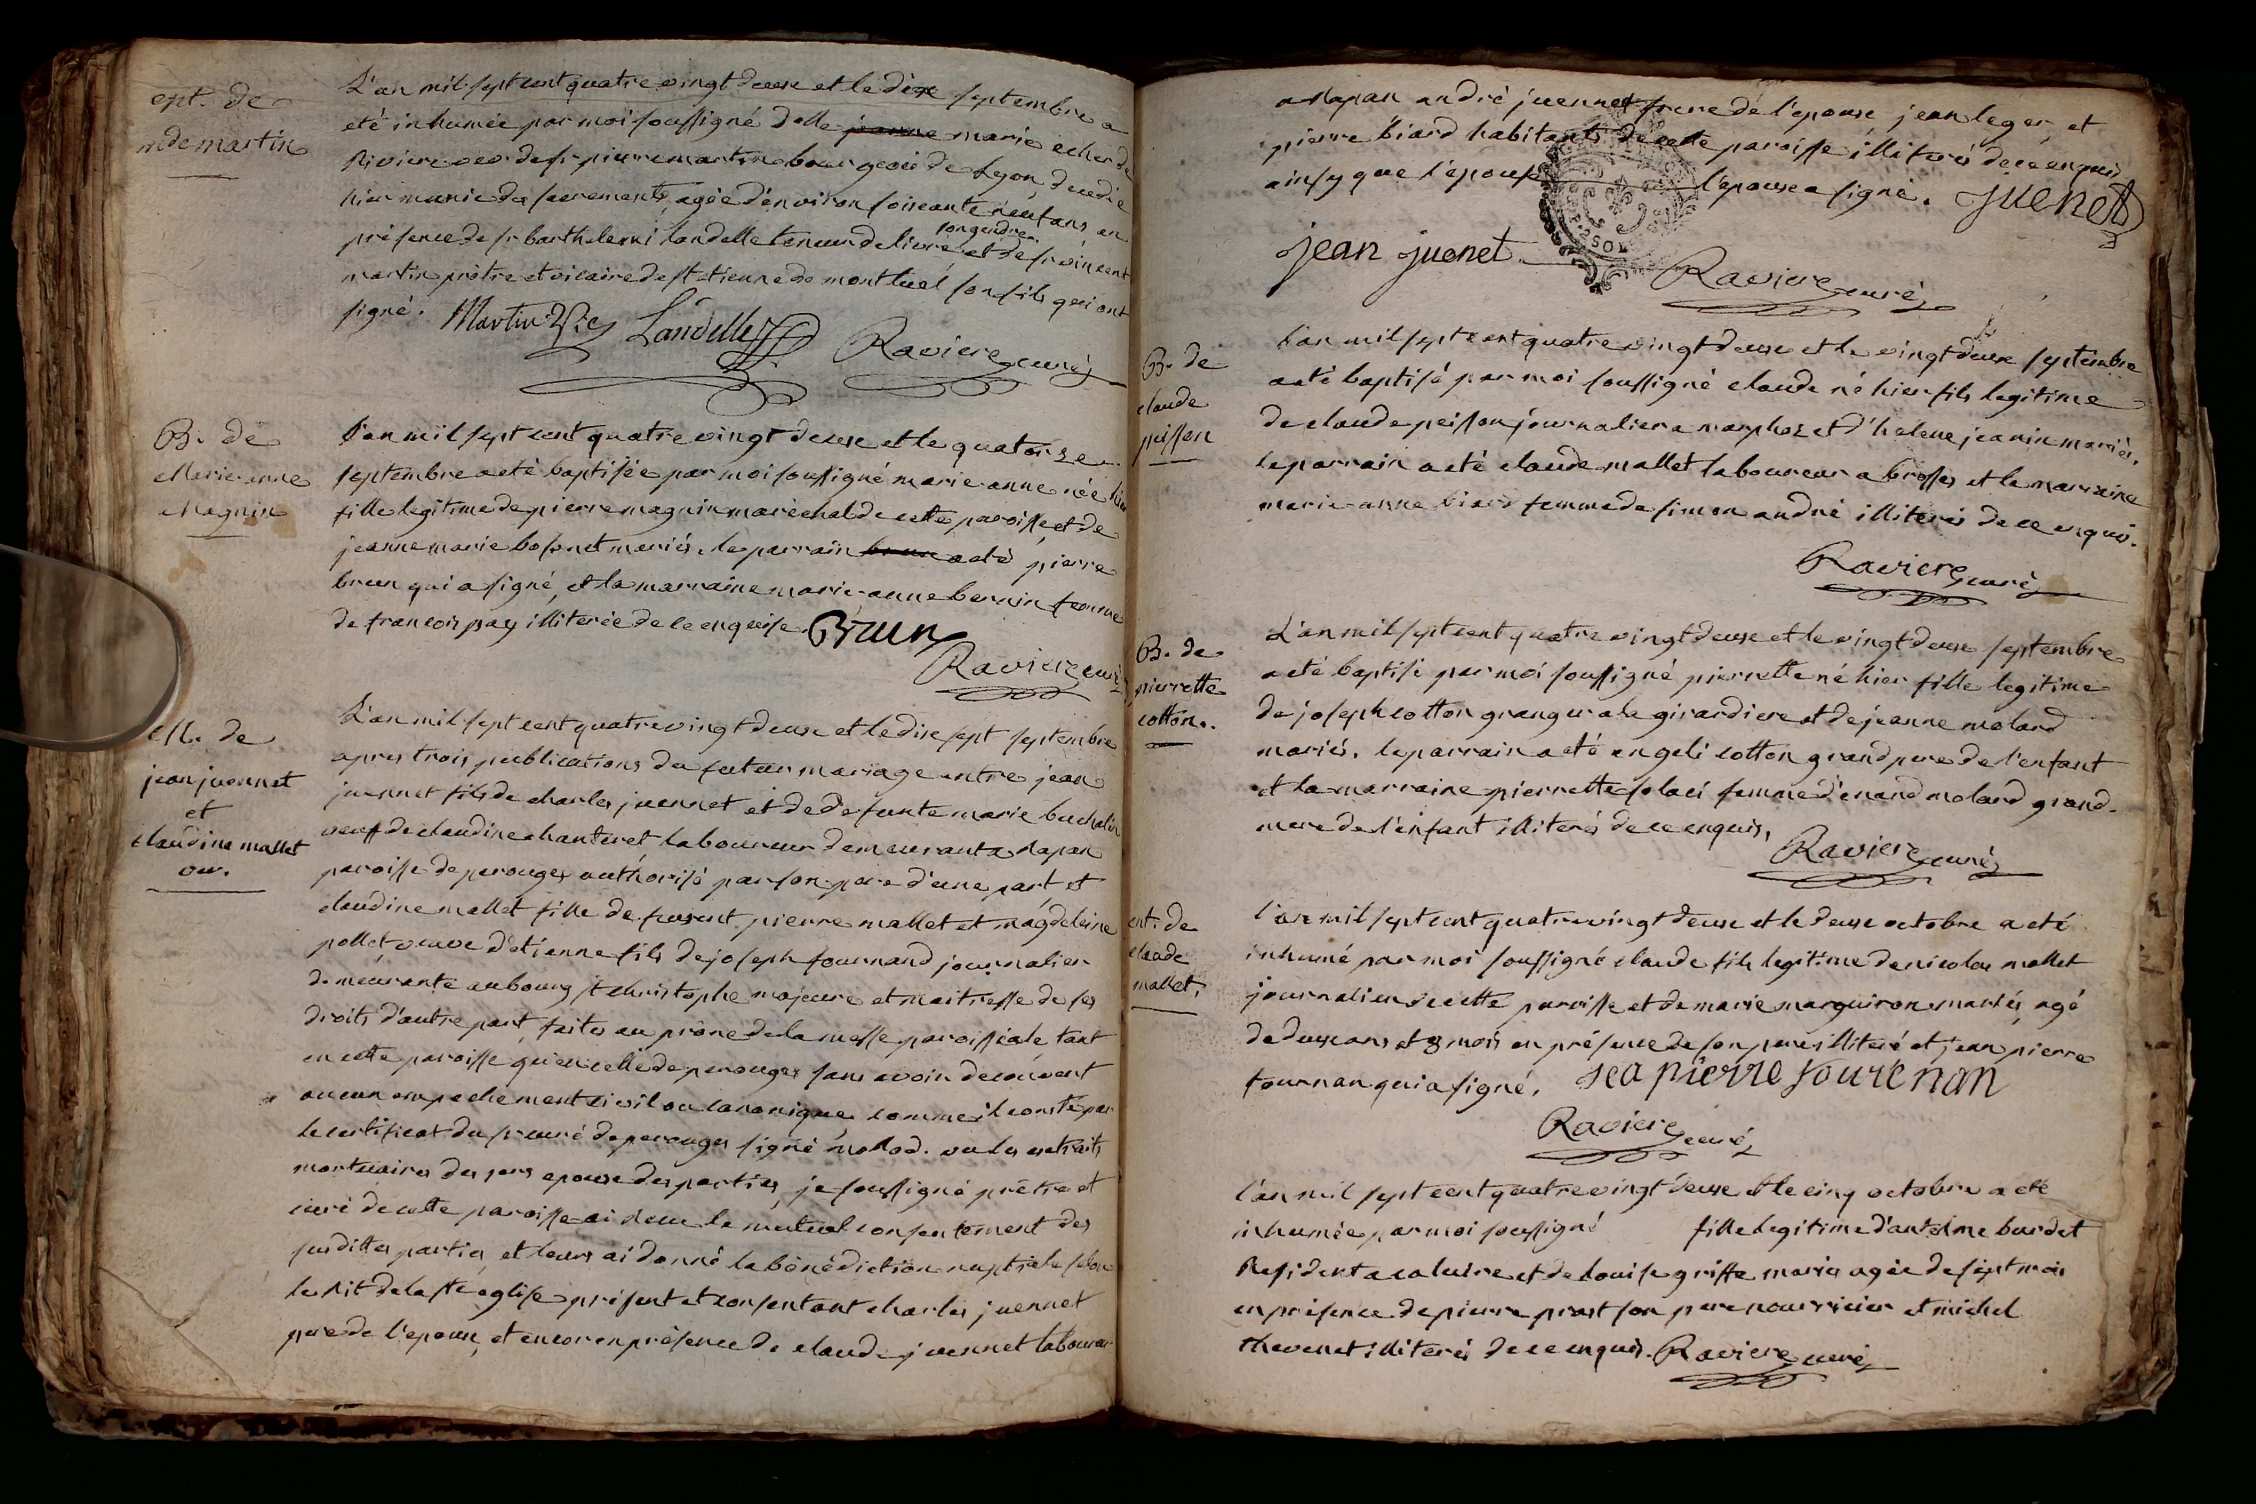 ent. de
mde martin
L'an mil sept cent quatre vingt deuse et le dix septembre a
eté inhumée par moi soussigné delle jeanne marie echer de
Riviere veuve de sr pierre martin bourgeois de Lyon decedée
hier munie des sacrements agée d'environ soixante neuf ans en
son gendre
présence de sr barthelemi landelle teneur de livre et de sr vincent
martin prêtre et vicaire de st etienne de montluel son fils qui ont
signé. Martin Landelle Raviere curé
B. de
Marie-anne
Magnin
L'an mil sept cent quatre vingt deuse et le quatorse
septembre a eté baptisée par moi soussigné marie-anne née hier
fille legitime de pierre magnin maréchal de cette paroisse et de
jeanne marie bossonet mariés. le parrain brun a eté pierre
brun qui a signé, et la marraine marie-anne bernin femme
de francois pay illiterée de ce enquise. Brun
Raviere curé
M. de
jean juennet
et
claudine mallet
vve.
L'an mil sept cent quatre vingt deuse et le dix sept septembre
apres trois publications du futur mariage entre jean
juennet fils de charles juennet et de defunte marie buchalin
veuf de claudine chanteret laboureur demeurant a Rapan
paroisse de perouges authorisé par son pere d'une part et
claudine mallet fille de feu pierre mallet et magdeleine
pollet veuve d'etienne fils de joseph fournand journalier
demeurante au bourg st christophe majeure et maitresse de ses
droits d'autre part, faites au prône de la messe paroissiale tant
en cette paroisse qu'en celle de perouges sans avoir decouvert
aucun empechement civil ou canonique, comme il conste par
le certificat du sr curé de perouges signé molod. vu les extraits
mortuaires des epouse des parties, je soussigné prêtre et
curé de cette paroisse ai recu le mutuel consentement des
susdittes parties, et leurs ai donné la bénédiction nuptiale selon
le Rit de la ste eglise présent et consentant charles juennet
pere de l'epoux, et encor en présence de claude juennet laboureur
a Rapan andré juennet frere de l'epouse jean leger, et
pierre biard habitants de cette paroisse illiterés de ce enquis
ainsy que l'epouse l'epouse a signé. juenet
jean juenet Raviere curé
B. de
claude
peisson
L'an mil sept cent quatre vingt deuse et le vingt deuse septembre
a eté baptisé par moi soussigné claude né hier fils legitime
de claude peisson journalier a marphoz et d'helene jeanin mariés.
le parrain a eté claude mallet laboureur a brosses et la marraine
marie-anne biard femme de simon andré illiterés de ce enquis.
Raviere curé
B. de
pierrette
cotton.
L'an mil sept cent quatre vingt deuse et le vingt deuse septembre
a eté baptisé par moi soussigné pierrette né hier fille legitime
de joseph cotton granger a la girardiere et de jeanne molard
mariés. le parrain a eté angeli cotton grand pere de l'enfant
et la marraine pierrette solaci femme d'enand molard grand-
mere de l'enfant illiterés de ce enquis,
Raviere curé
ent. de
claude
mallet,
L'an mil sept cent quatre vingt deuse et le deuse octobre a eté
inhumé par moi soussigné claude fils legitime de nicolas mallet
journalier de cette paroisse et de marie marguiron mariés, agé
de deux ans et 8 mois en présence de son pere illiteré et jean pierre
fournan qui a signé. jea pierre fourenan
Raviere curé
L'an mil sept cent quatre vingt deuse et le cinq octobre a eté
inhumée par moi soussigné fille legitime d'antelme burdet
Resident a caluire et de louise griffe mariés agée de sept mois
en présence de pierre prost son pere nourricier et michel
thevenet illiterés de ce enquis. Raviere curé